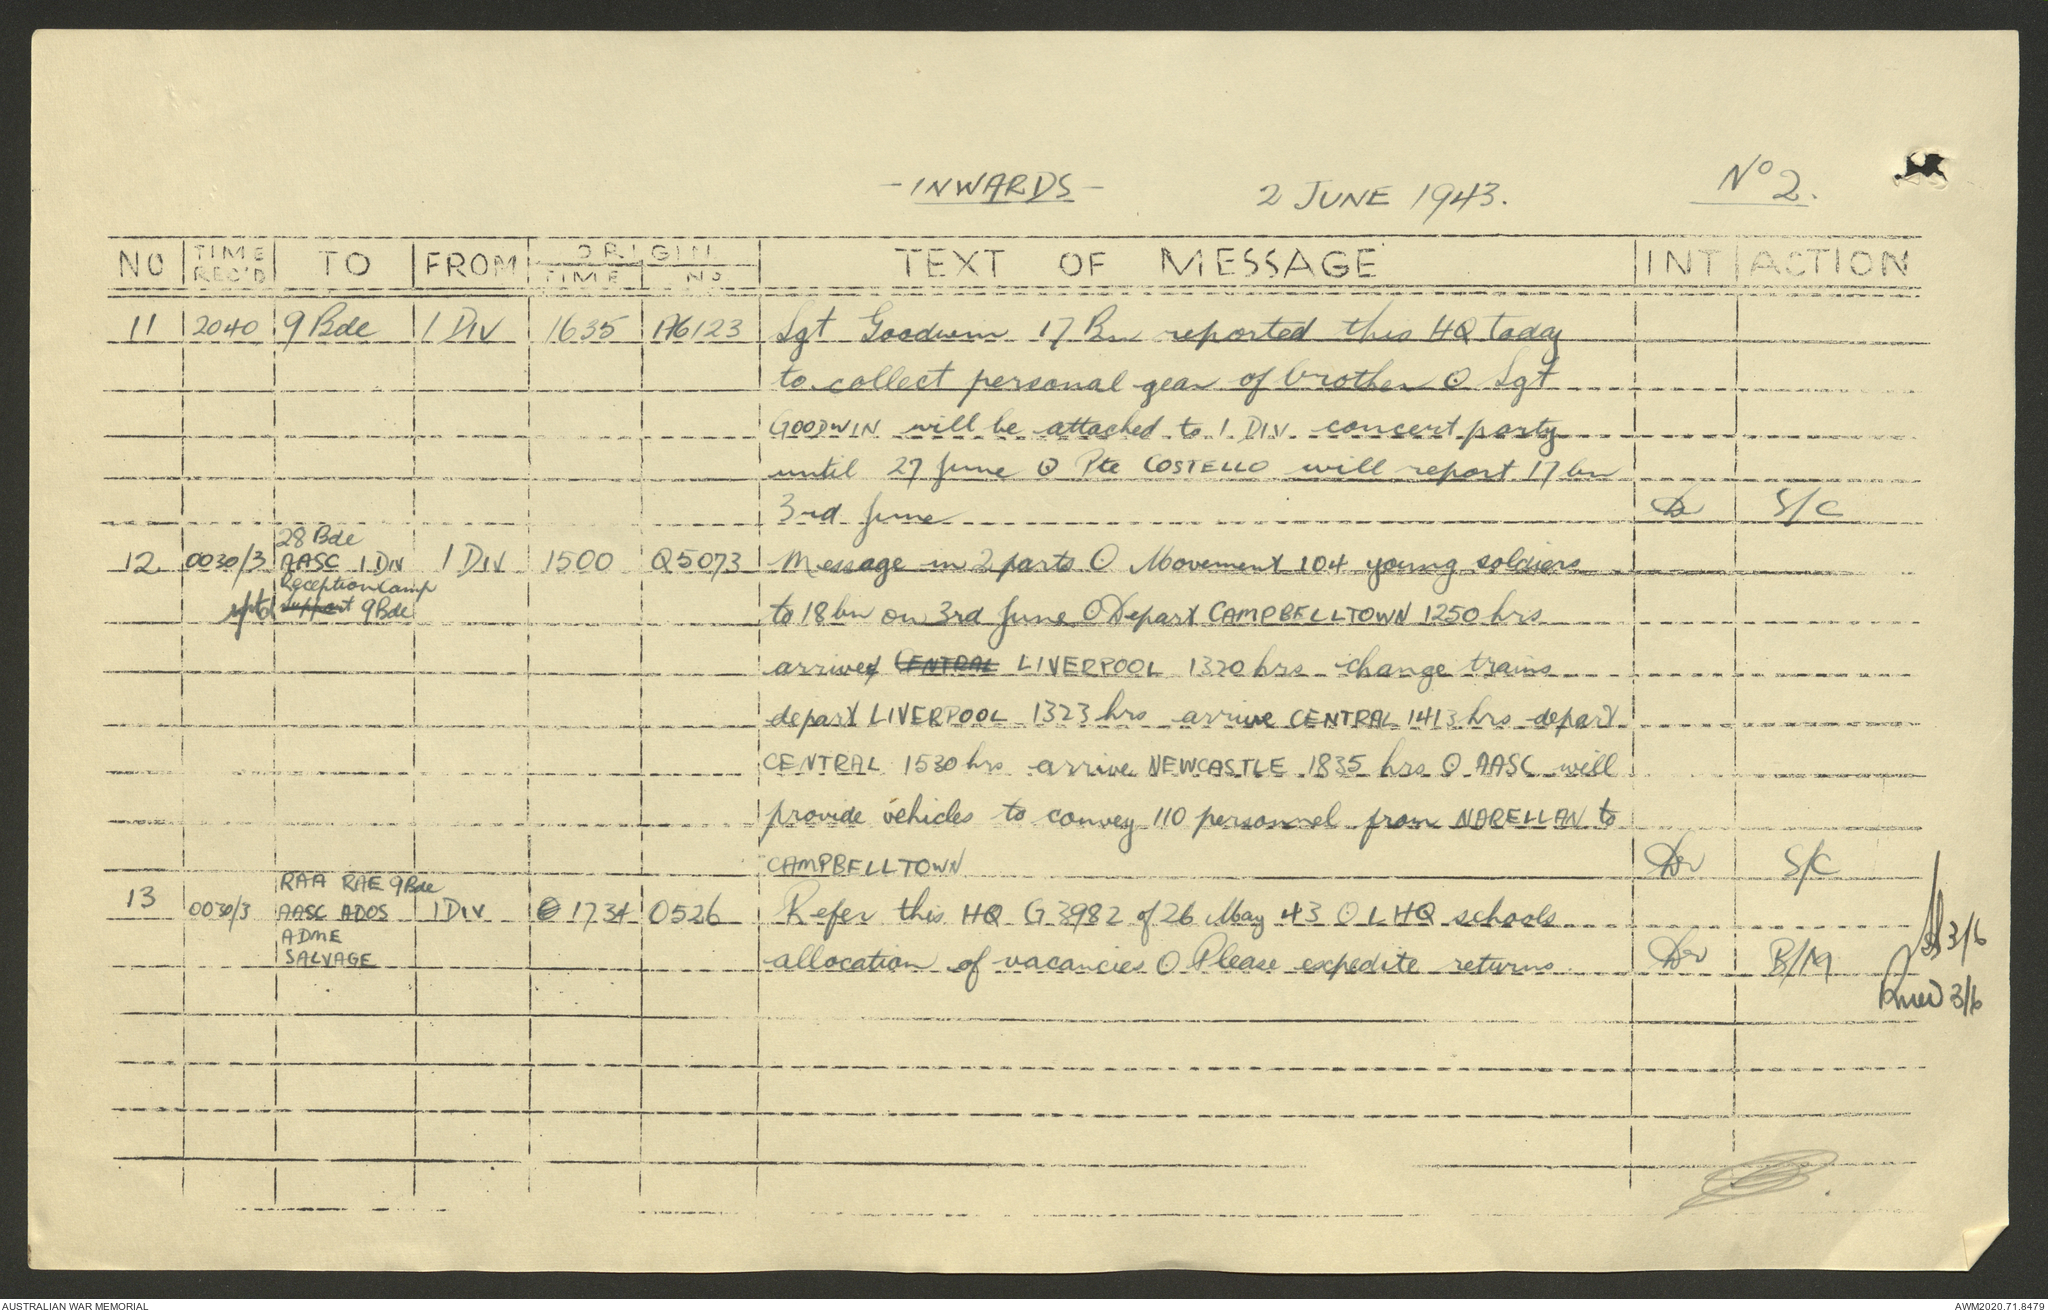 - INWARDS -
2 JUNE 1943.
No 2.
NO TIME REC'D TO FROM ORIGIN TIME NO TEXT OF MESSAGE INT ACTION
11 2040 9 Bde 1 DIV 1635 A6123 Sgt Goodwin 17 Bn reported this HQ today
to collect personal gear of brother O Sgt
GOODWIN will be attached to 1 DIV concert party
until 27 June O Pte COSTELLO will report 17 bn
3rd June S/C
28 Bde
12 0030/3 AASC 1 DIV 1 DIV 1500 Q5073 Message in 2 parts O Movement 104 young soldiers
Reception Camp
rptd support 9 Bde to 18 bn on 3rd June O Depart CAMPBELLTOWN 1250 hrs
arrive CENTRAL LIVERPOOL 1320 hrs change trains
depart LIVERPOOL 1323 hrs arrive CENTRAL 1413 hrs depart
CENTRAL 1530 hrs arrive NEWCASTLE 1835 hrs O AASC will
provide vehicles to convey 110 personnel from NARELLAN to
CAMPBELLTOWN S/C
RAA RAE 9 Bde
13 0030/3 AASC ADOS 1 DIV 1734 O526 Refer this HQ G3982 of 26 May 43 O LHQ schools
ADME
SALVAGE allocation of vacancies O Please expedite returns B/M
3/6
3/6
AUSTRALIAN WAR MEMORIAL
AWM2020.71.8479